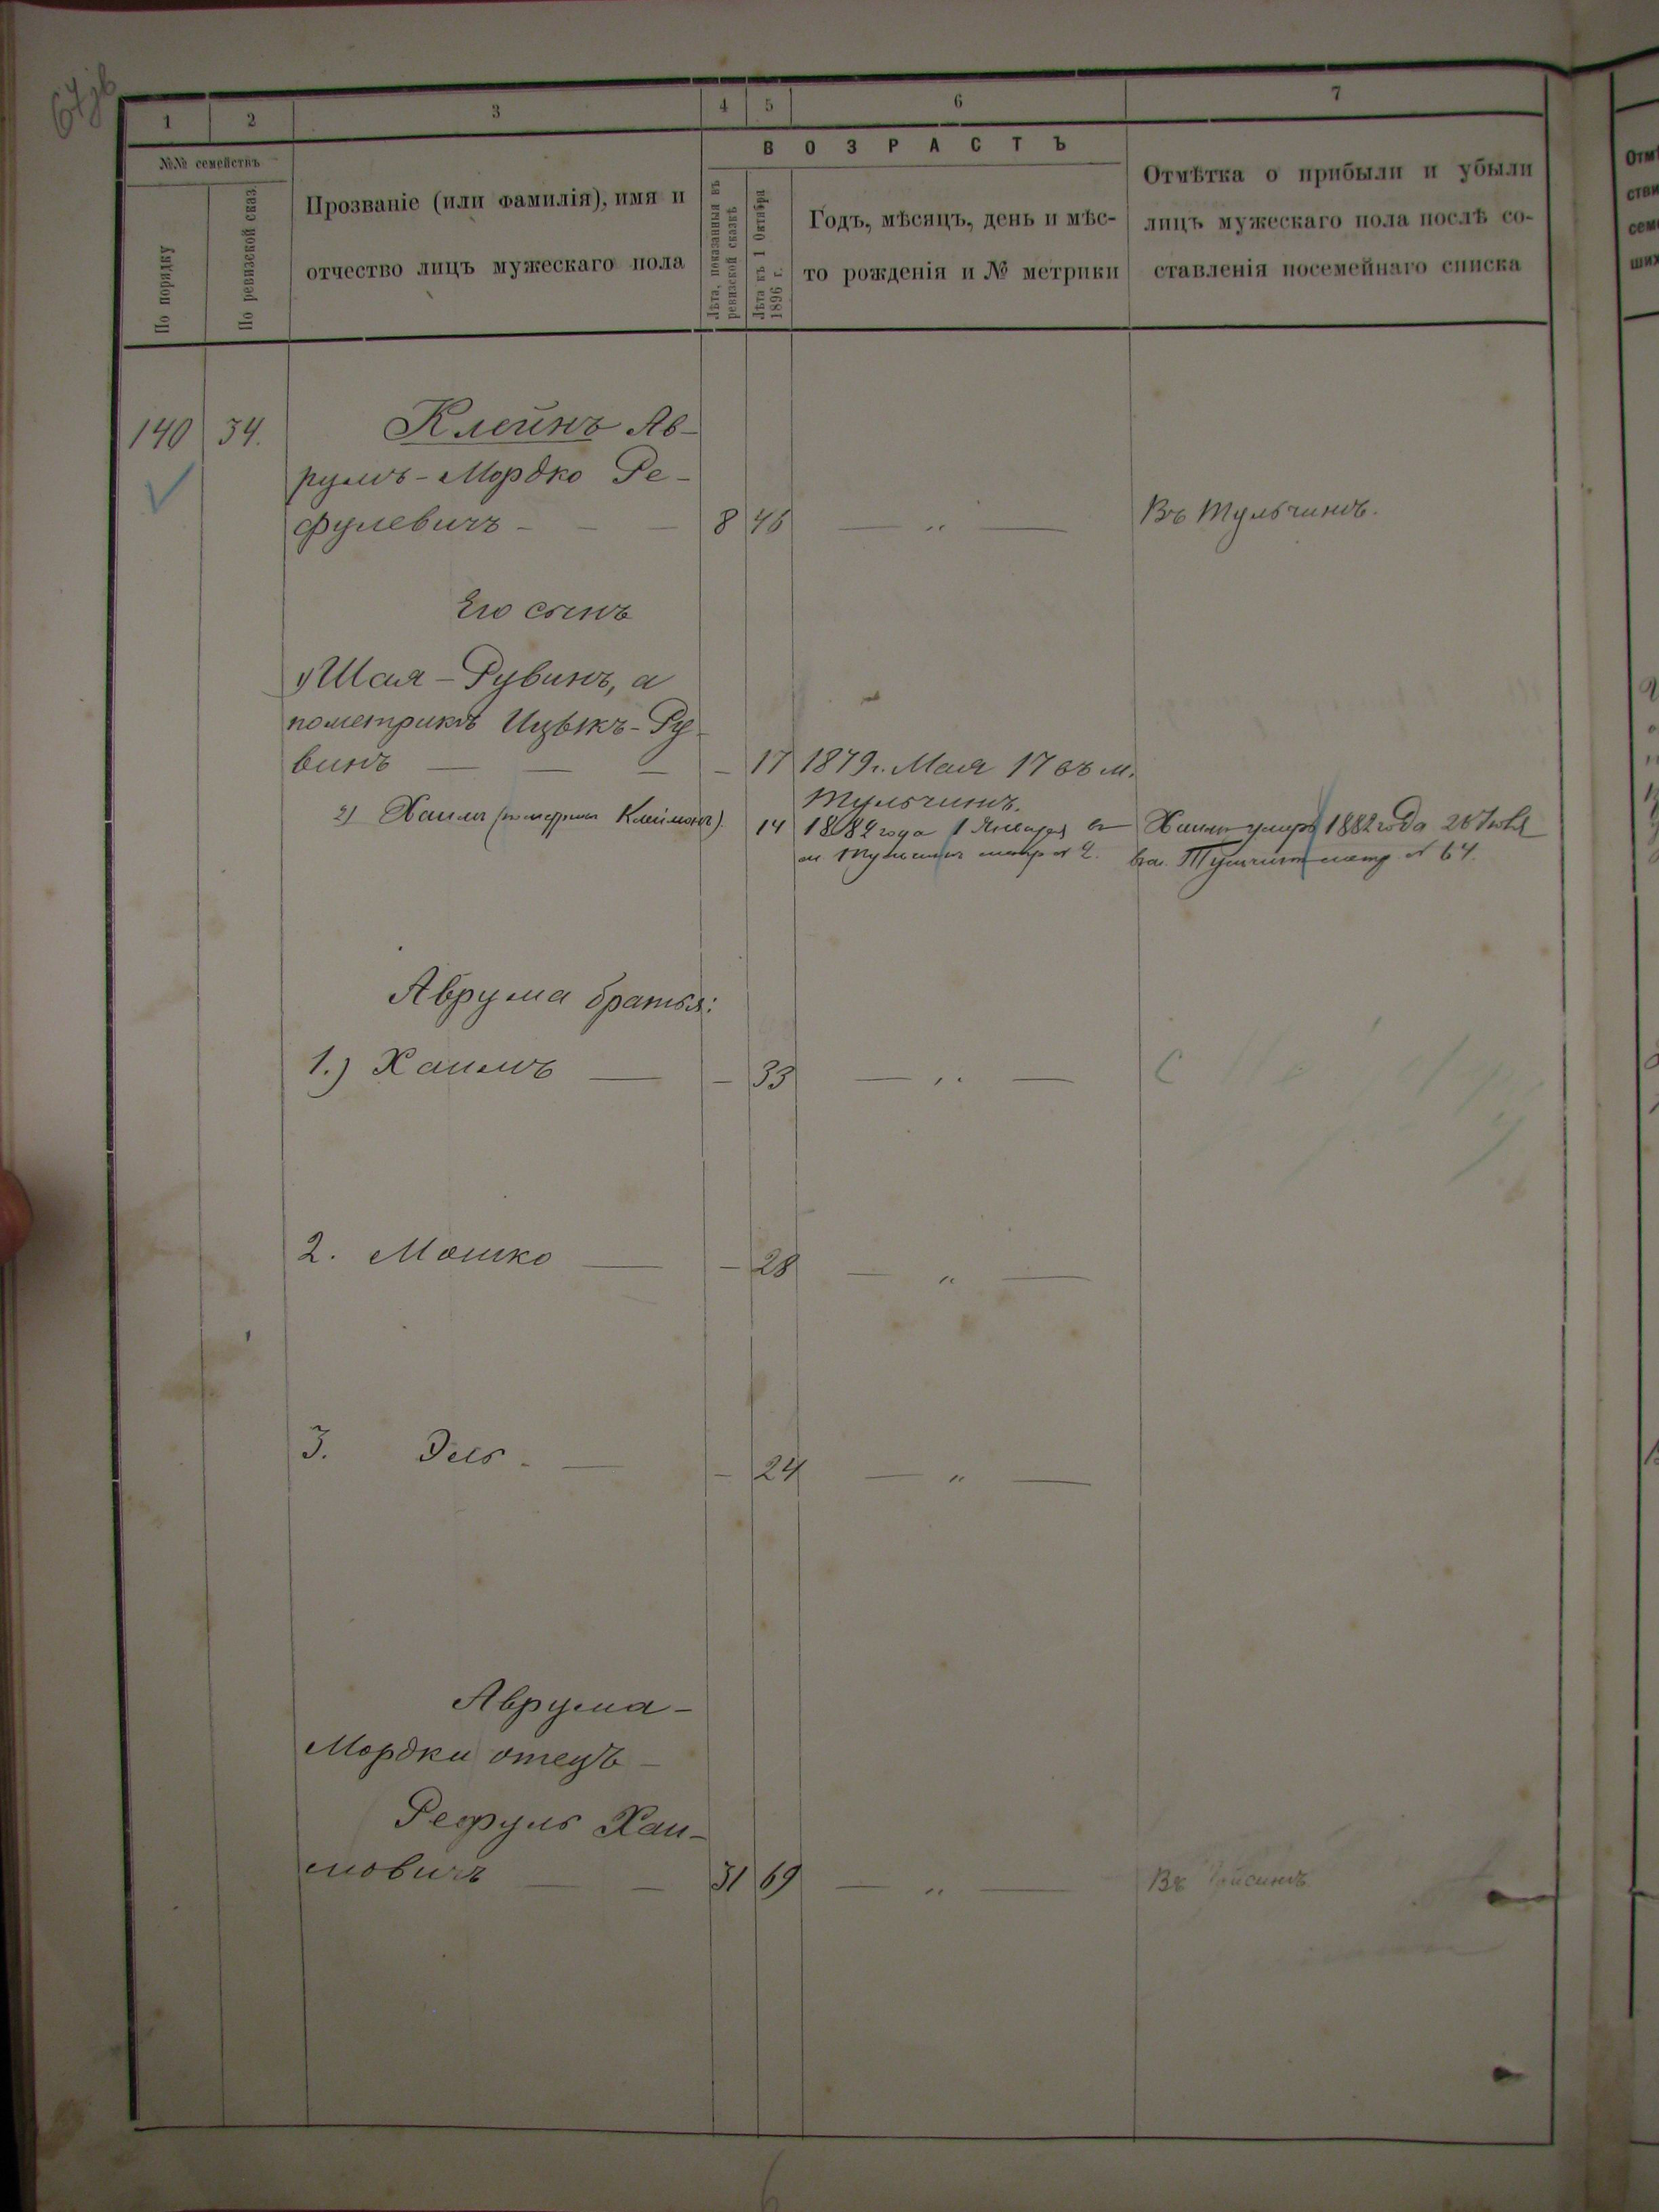 1 2 3 4 5 6 7
№№ семействъ
По порядку
По ревизской сказ.
Прозваніе (или фамилія), имя и
отчество лицъ мужескаго пола
ВОЗРАСТЪ
Лѣта, показанныя въ
ревизской сказкѣ
Лѣта къ 1 Октября
1896 г.
Годъ, мѣсяцъ, день и мѣс-
то рожденія и № метрики
Отмѣтка о прибыли и убыли
лицъ мужескаго пола послѣ со-
ставленія посемейнаго списка
140 34. Клейнъ Ав-
румъ-Мордко Ре-
фулевичъ - - - 8 46 — „ — Въ Тульчинѣ.
Его сынъ
1) Шая-Рувинъ, а
пометрикѣ Ицыкъ-Ру-
винъ — — — - 17 1879г. Мая 17 въ м.
Тульчинѣ.
2) Хаимъ 14 1882 года 1 Января въ Хаимъ умеръ 1882 года
м. Тульчинѣ метр № 2. въ м. Тульчинѣ метр № 64.
Аврума братья:
1.) Хаимъ — - 33 — „ —
2. Мошко — - 28 — „ —
3. Эль - — - 24 — „ —
Аврума-
Мордки отецъ -
Рефуль Хаи-
мовичъ — — 31 69 — „ — Въ Гайсинѣ.